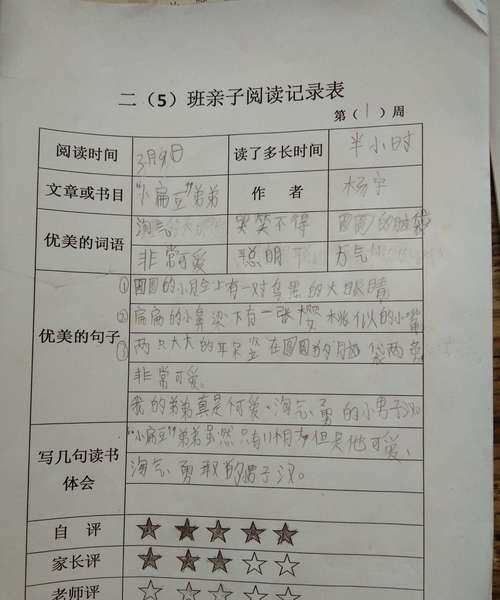 二（5）班亲子阅读记录表
第（1）周
阅读时间 3月9日 读了多长时间 半小时
文章或书目 “小扁豆”弟弟 作者 杨宇
优美的词语 淘气 哭笑不得 圆圆的脑袋
非常可爱 聪明 力气
优美的句子
①圆圆的小脸上有一对乌黑的大眼睛
②扁扁的小鼻梁下有一张樱桃似的小嘴
③两只大大的耳朵竖在圆圆的脑袋两旁
非常可爱。
我的弟弟真是可爱、淘气、勇的小男子汉
写几句读书体会
“小扁豆”弟弟虽然只有11个月大但是他可爱、
淘气、勇敢的男子汉。
自评 ★★★★★
家长评 ★★★☆☆
老师评 ☆☆☆☆☆